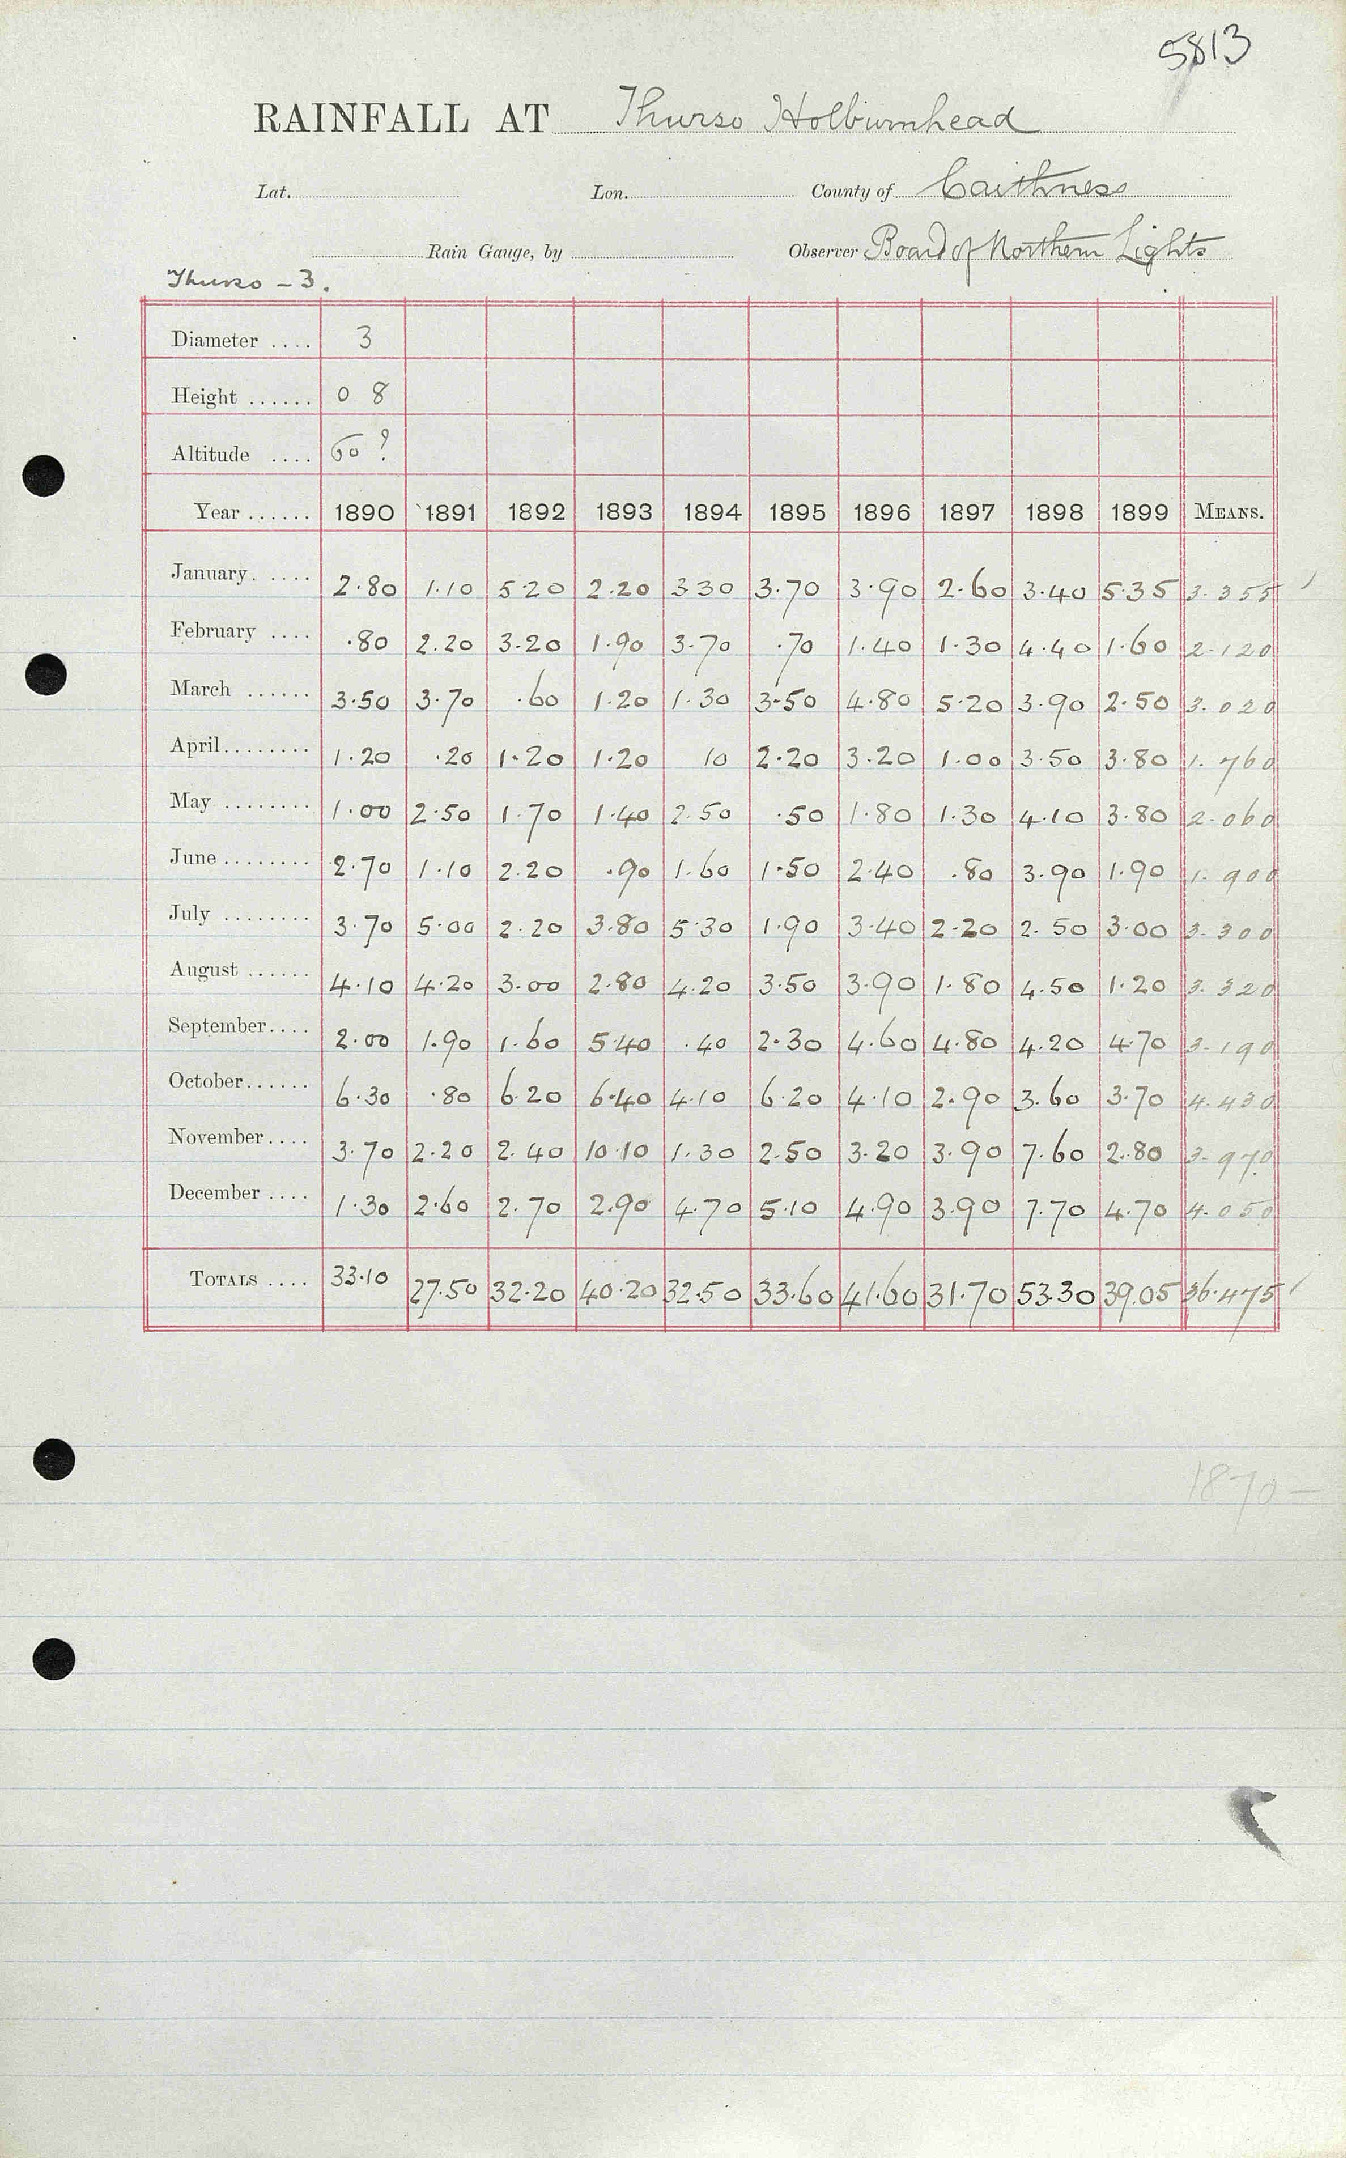 5813
RAINFALL AT Thurso Holburnhead
Lat. Lon. County of Caithness
Rain Gauge, by Observer Board of Northern Lights
Thurso - 3.
Diameter .... 3
Height ...... 0 8
Altitude .... 60 ?
Year ...... 1890 1891 1892 1893 1894 1895 1896 1897 1898 1899 MEANS.
January. .... 2.80 1.10 5.20 2.20 3.30 3.70 3.90 2.60 3.40 5.35 3.355
February .... .80 2.20 3.20 1.90 3.70 .70 1.40 1.30 4.40 1.60 2.120
March ...... 3.50 3.70 .60 1.20 1.30 3.50 4.80 5.20 3.90 2.50 3.020
April........ 1.20 .20 1.20 1.20 10 2.20 3.20 1.00 3.50 3.80 1.760
May ........ 1.00 2.50 1.70 1.40 2.50 .50 1.80 1.30 4.10 3.80 2.060
June ........ 2.70 1.10 2.20 .90 1.60 1.50 2.40 .80 3.90 1.90 1.900
July ........ 3.70 5.00 2.20 3.80 5.30 1.90 3.40 2.20 2.50 3.00 3.300
August ...... 4.10 4.20 3.00 2.80 4.20 3.50 3.90 1.80 4.50 1.20 3.320
September.... 2.00 1.90 1.60 5.40 .40 2.30 4.60 4.80 4.20 4.70 3.190
October...... 6.30 .80 6.20 6.40 4.10 6.20 4.10 2.90 3.60 3.70 4.430
November.... 3.70 2.20 2.40 10.10 1.30 2.50 3.20 3.90 7.60 2.80 3.970
December .... 1.30 2.60 2.70 2.90 4.70 5.10 4.90 3.90 7.70 4.70 4.050
TOTALS .... 33.10 27.50 32.20 40.20 32.50 33.60 41.60 31.70 53.30 39.05 36.475
1870 —